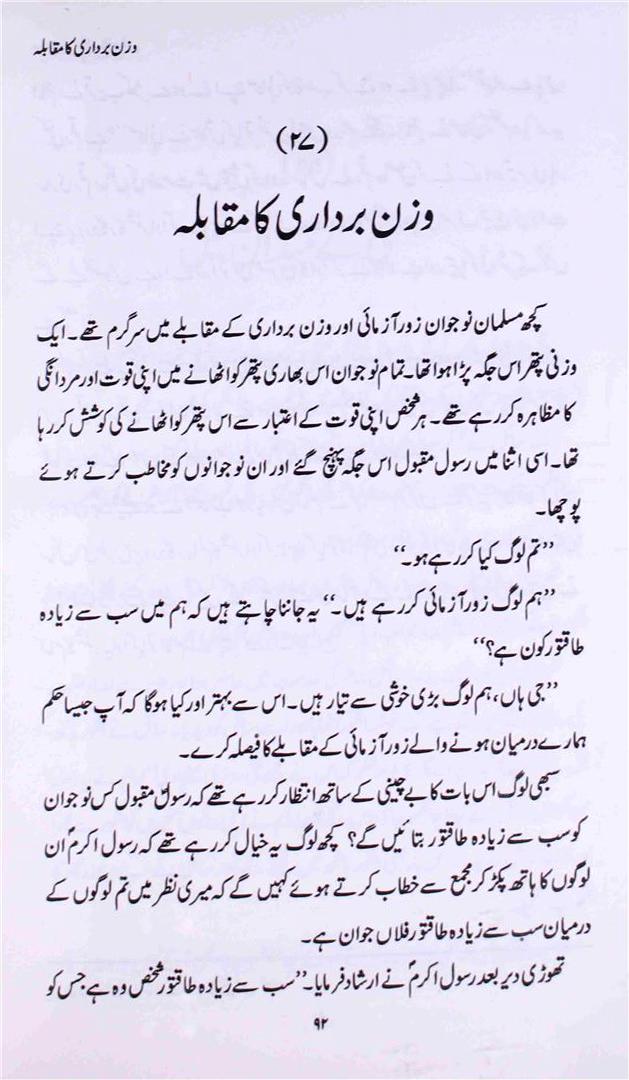 وزن برداری کا مقابلہ
(۲۷)
وزن برداری کا مقابلہ
کچھ مسلمان نوجوان زور آزمائی اور وزن برداری کے مقابلے میں سرگرم تھے۔ ایک
وزنی پتھر اس جگہ پڑا ہوا تھا۔ تمام نوجوان اس بھاری پتھر کو اٹھانے میں اپنی قوت اور مردانگی
کا مظاہرہ کر رہے تھے۔ ہر شخص اپنی قوت کے اعتبار سے اس پتھر کو اٹھانے کی کوشش کر رہا
تھا۔ اسی اثنا میں رسول مقبول اس جگہ پہنچ گئے اور ان نوجوانوں کو مخاطب کرتے ہوئے
پوچھا۔
”تم لوگ کیا کر رہے ہو۔“
”ہم لوگ زور آزمائی کر رہے ہیں۔“ یہ جاننا چاہتے ہیں کہ ہم میں سب سے زیادہ
طاقتور کون ہے؟“
”جی ہاں، ہم لوگ بڑی خوشی سے تیار ہیں۔ اس سے بہتر اور کیا ہوگا کہ آپ جیسا حکم
ہمارے درمیان ہونے والے زور آزمائی کے مقابلے کا فیصلہ کرے۔
سبھی لوگ اس بات کا بے چینی کے ساتھ انتظار کر رہے تھے کہ رسولؐ مقبول کس نوجوان
کو سب سے زیادہ طاقتور بتائیں گے؟ کچھ لوگ یہ خیال کر رہے تھے کہ رسول اکرمؐ ان
لوگوں کا ہاتھ پکڑ کر مجمع سے خطاب کرتے ہوئے کہیں گے کہ میری نظر میں تم لوگوں کے
درمیان سب سے زیادہ طاقتور فلاں جوان ہے۔
تھوڑی دیر بعد رسول اکرمؐ نے ارشاد فرمایا۔ ”سب سے زیادہ طاقتور شخص وہ ہے جس کو
۹۲